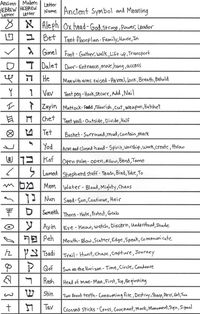 Ancient HEBREW Letter Modern HEBREW Letter Letter Name Ancient Symbol and Meaning
א Aleph Ox head - God, Strong, Power, Leader
ב Bet Tent floorplan - Family, House, In
ג Gimel Foot - Gather, Walk, Life up, Transport
ד Dalet Door - Entrance, move, hang, access
ה He Man with arms raised - Reveal, look, Breath, Behold
ו Vav Tent peg - Hook, Secure, Add, Nail
ז Zayin Mattock - Food, Nourish, Cut, Weapon, Harvest
ח Chet Tent wall - Outside, Divide, Half
ט Tet Basket - Surround, mud, contain, mark
י Yod Arm and closed hand - work, create, throw
כ Kaf Open palm - open, Allow, Bend, Tame
ל Lamed Shepherd staff - Teach, Bind, Yoke, To
מ Mem Water - Blood, Mighty, Chaos
נ Nun Seed - Son, Continue, Heir
ס Samekh Thorn - Hate, Protect, Grab
ע Ayin Eye - Know, Watch, Discern, Understand, Shade
פ Peh Mouth - Blow, Scatter, Edge, Speak, Communicate
צ Tsadi Trail - Hunt, Chase, Capture, Journey
ק Qof Sun on the Horizon - Time, Circle, Condense
ר Resh Head of man - Man, First, Top, Beginning
ש Shin Two front teeth - Consuming Fire, Destroy, Sharp, Press, Eat, Two
ת Tav Crossed Sticks - Cross, Covenant, Mark, Monument, Sign, Signal